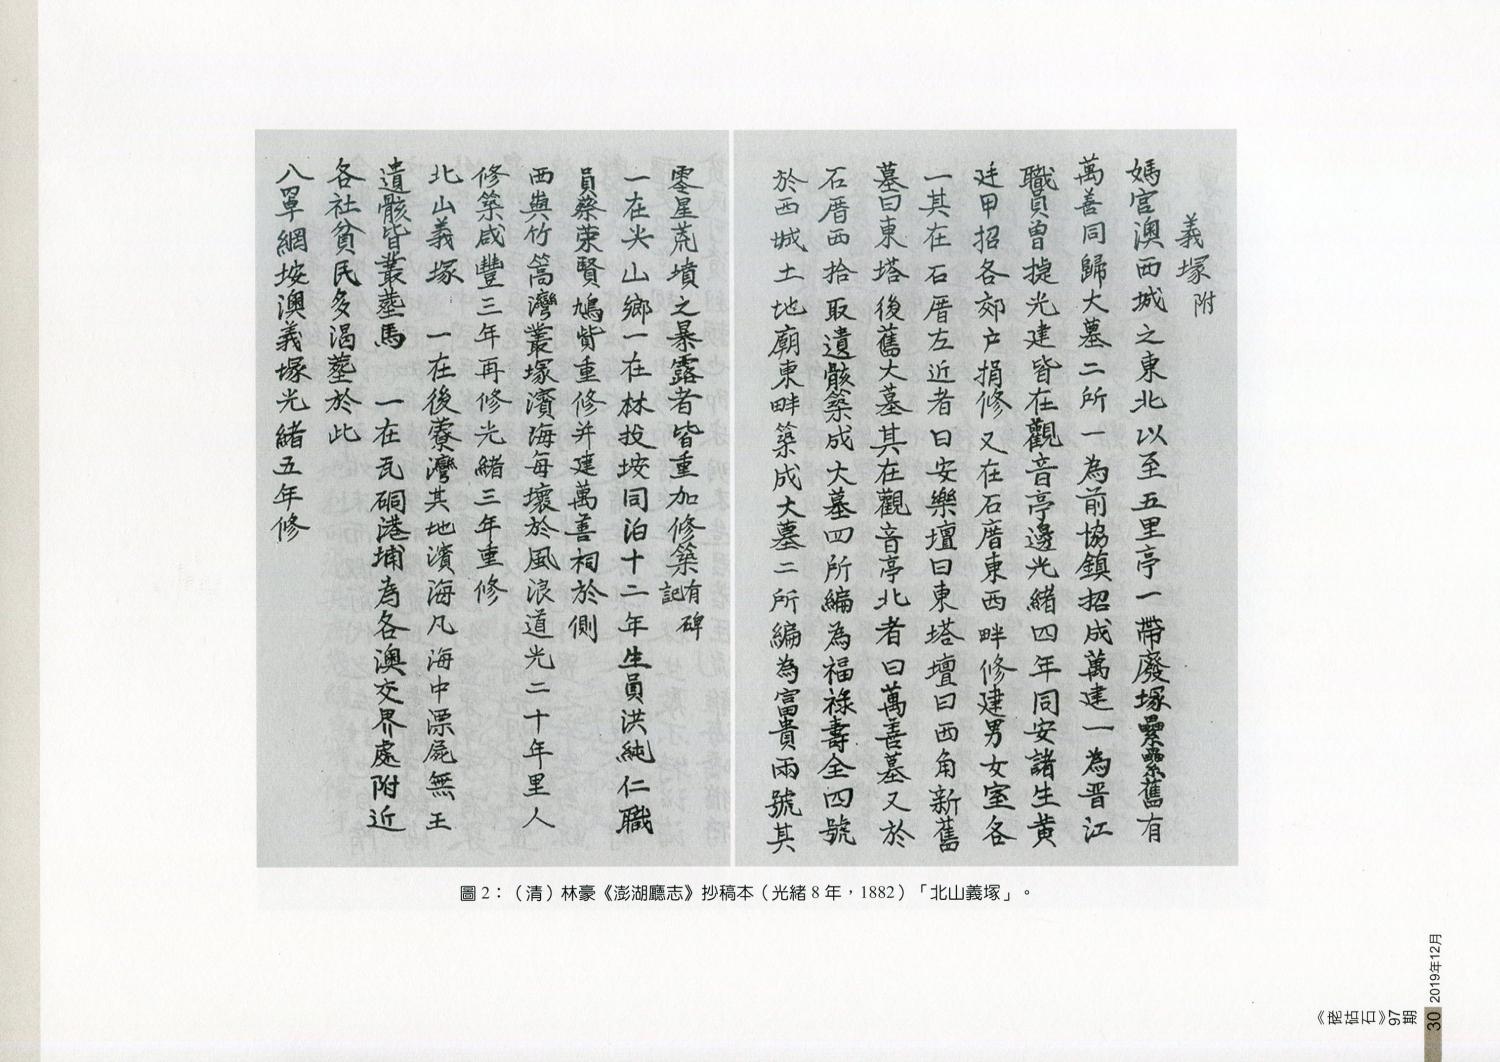 義塚附
媽宮澳西城之東北以至五里亭一帶廢塚纍纍舊有
萬善同歸大墓二所一為前協鎮招成萬建一為晋江
職員曾捷光建皆在觀音亭邊光緒四年同安諸生黄
廷甲招各郊户捐修又在石厝東西畔修建男女室各
一其在石厝左近者曰安樂壇曰東塔壇曰西角新舊
墓曰東塔後舊大墓其在觀音亭北者曰萬善墓又於
石厝西拾取遺骸築成大墓四所編為福祿壽全四號
於西城土地廟東畔築成大墓二所編為富貴兩號其
零星荒墳之暴露者皆重加修築有碑記
一在尖山鄉一在林投垵同治十二年生員洪純仁職
員蔡荣賢鳩貲重修并建萬善祠於側
西與竹篙灣叢塚濱海每壞於風浪道光二十年里人
修築咸豐三年再修光緒三年重修
北山義塚 一在後藔灣其地濱海凡海中漂屍無主
遺骸皆叢塟馬 一在瓦硐港埔為各澳交界處附近
各社貧民多渴塟於此
八罩網垵澳義塚光緒五年修
圖2：（清）林豪《澎湖廳志》抄稿本（光緒8年，1882）「北山義塚」。
《硓𥑮石》97期
30 2019年12月